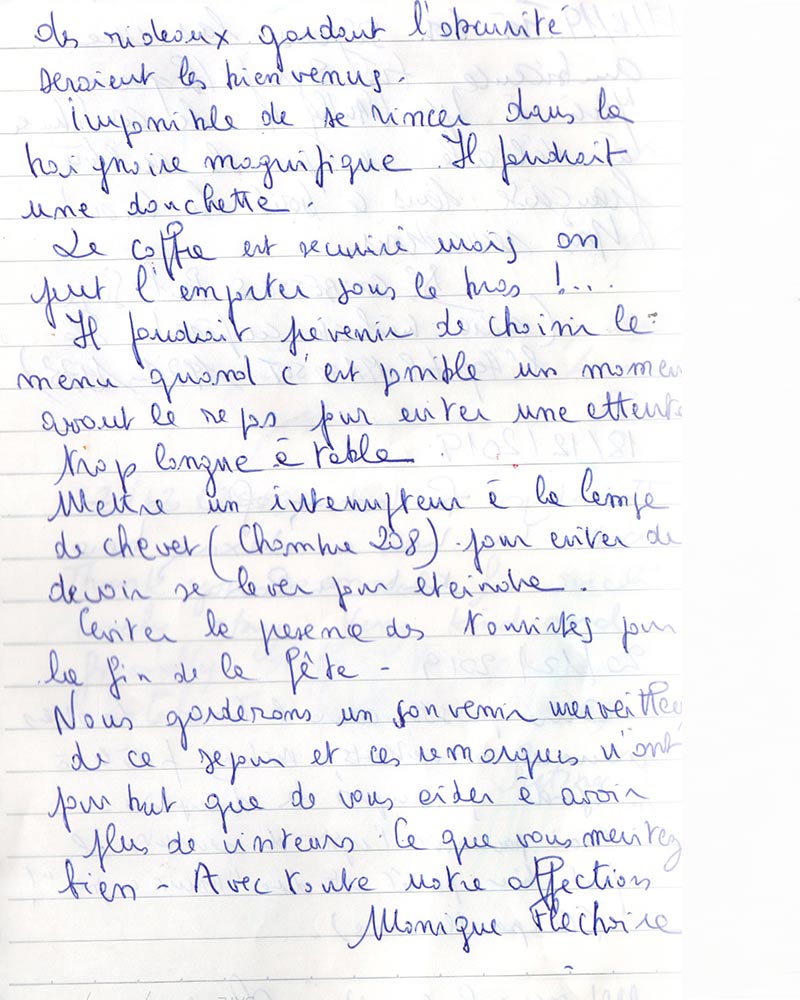 des rideaux gardant l'obscurité
seraient les bienvenus.
Impossible de se rincer dans la
baignoire magnifique. Il faudrait
une douchette.
Le coffre est sécurisé mais on
peut l'emporter sous le bras !...
Il faudrait prévenir de choisir le
menu quand c'est possible un momen
avant le repas pour eviter une attente
trop longue à table.
Mettre un interrupteur à la lampe
de chevet (Chambre 208) pour eviter de
devoir se lever pour eteindre.
Eviter la presence des touristes pour
la fin de la fête -
Nous garderons un souvenir merveilleu
de ce sejour et ces remarques n'ont
pour but que de vous aider à avoir
plus de visiteurs. Ce que vous meritez
bien - Avec toute notre affection
Monique